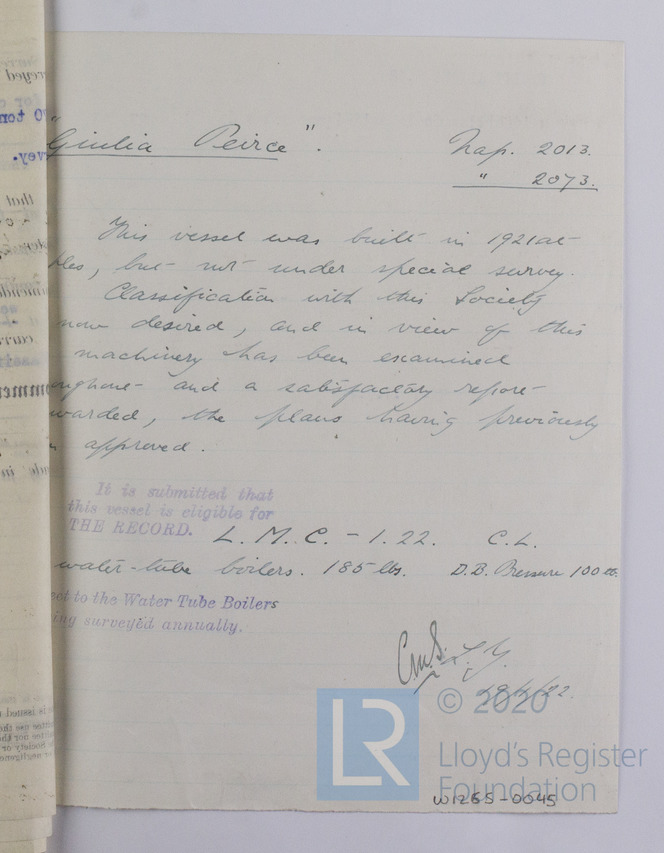 "Giulia Peirce".
Nap. 2013.
" 2073.
This vessel was built in 1921 at
les, but not under special survey.
Classification with this Society
now desired, and in view of this
machinery has been examined
ughout and a satisfactory report
warded, the plans having previously
n approved.
It is submitted that
this vessel is eligible for
THE RECORD. L.M.C. - 1.22. C.L.
water-tube boilers. 185 lbs. D.B. Pressure 100 lbs.
ect to the Water Tube Boilers
ing surveyed annually.
© 2020
LR
Lloyd's Register
Foundation
W1265-0045